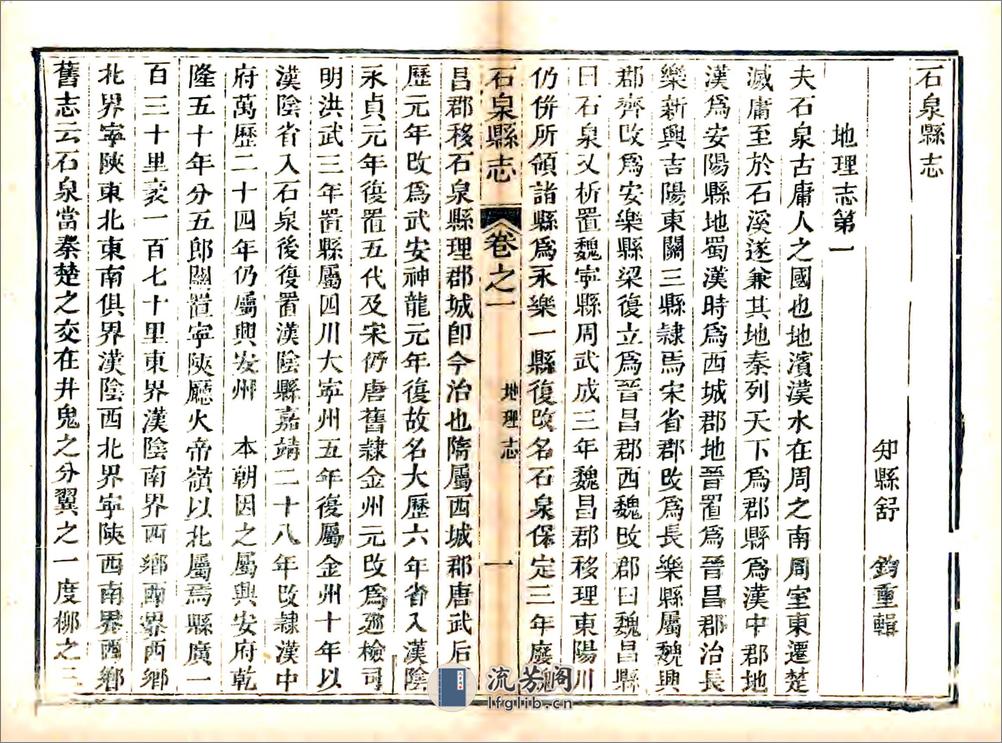 石泉縣志
知縣舒 鈞重輯
地理志第一
夫石泉古庸人之國也地濱漢水在周之南周室東遷楚
滅庸至於石溪遂兼其地秦列天下為郡縣為漢中郡地
漢為安陽縣地蜀漢時為西城郡地晉置為晉昌郡治長
樂新興吉陽東關三縣隸焉宋省郡改為長樂縣屬魏興
郡齊改為安樂縣梁復立為晉昌郡西魏改郡曰魏昌縣
曰石泉又析置魏寧縣周武成三年魏昌郡移理東陽川
仍併所領諸縣為永樂一縣復改名石泉保定三年廢魏
石泉縣志 卷之一 地理志 一
昌郡移石泉縣理郡城卽今治也隋屬西城郡唐武后聖
歷元年改為武安神龍元年復故名大歷六年省入漢陰
永貞元年復置五代及宋仍唐舊隸金州元改為廵檢司
明洪武三年置縣屬四川大寧州五年復屬金州十年以
漢陰省入石泉後復置漢陰縣嘉靖二十八年改隸漢中
府萬歷二十四年仍屬興安州 本朝因之屬興安府乾
隆五十年分五郎關置寧陝廳火帝嶺以北屬焉縣廣一
百三十里袤一百七十里東界漢陰南界西鄉西界西鄉
北界寧陝東北東南俱界漢陰西北界寧陝西南界西鄉
舊志云石泉當秦楚之交在井鬼之分翼之一度柳之三
流芳閣
lfglib.cn